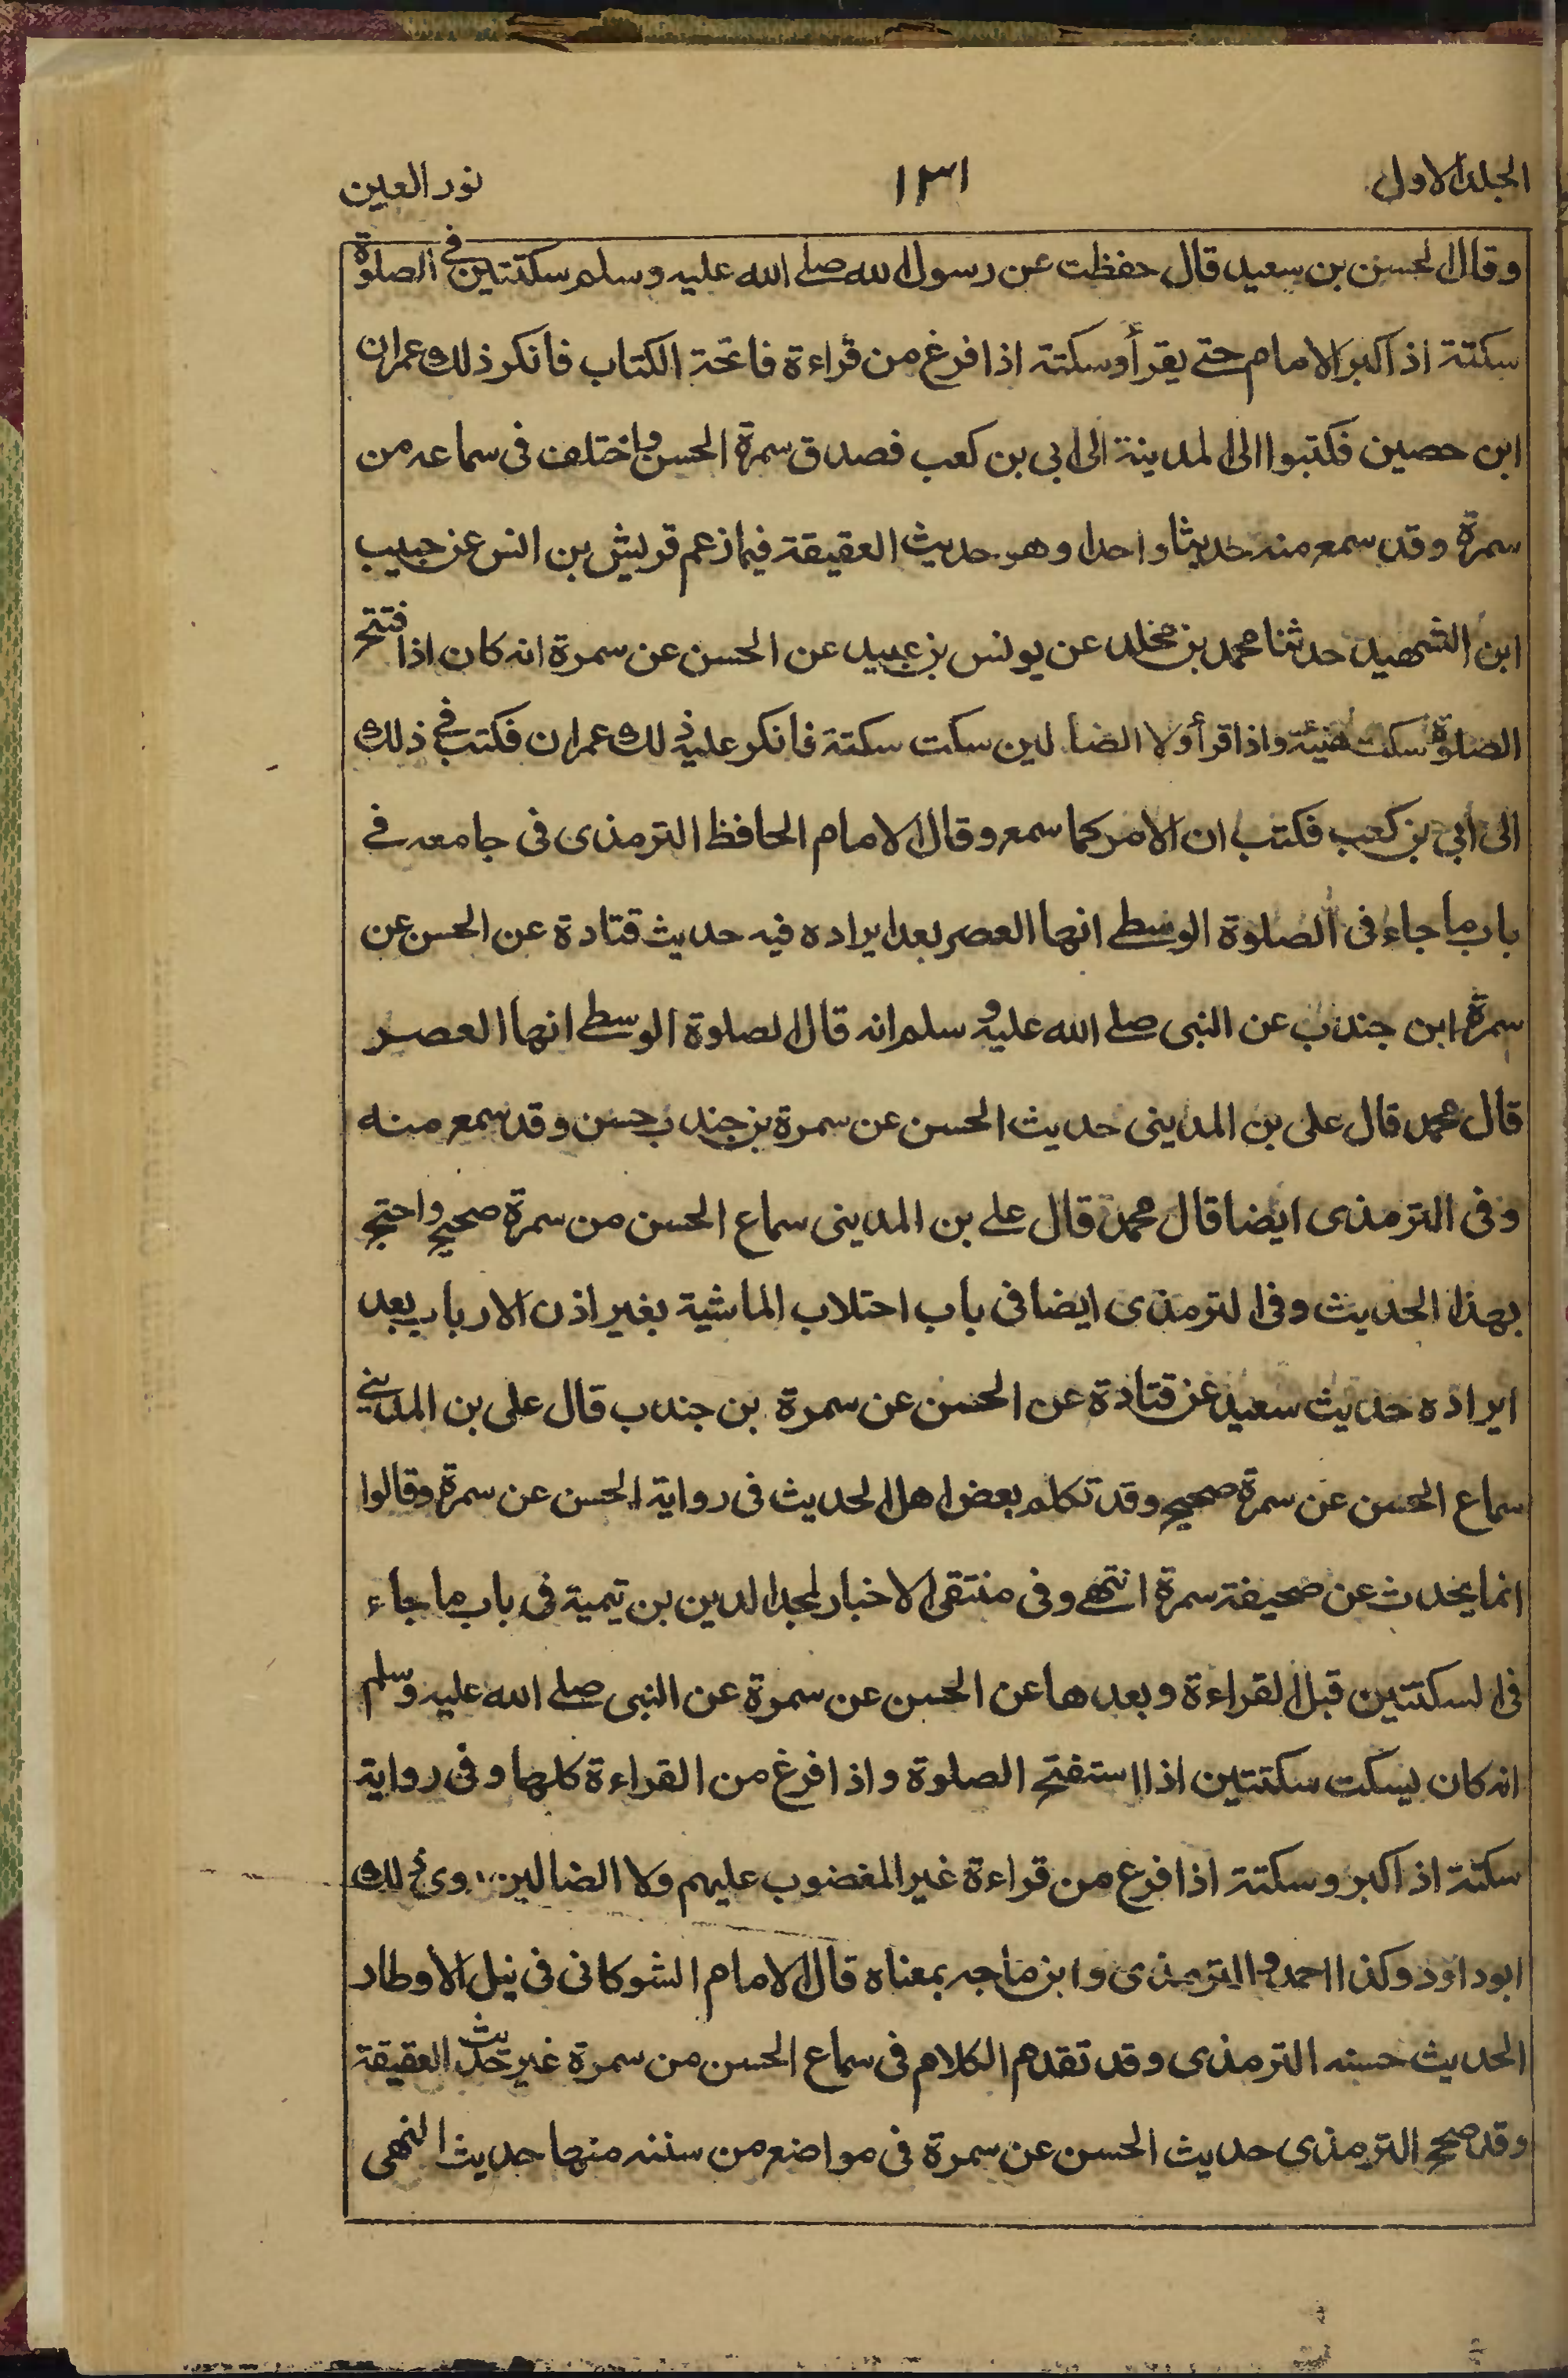 الجلد الاول
١٣١
نور العين
وقال الحسن بن سعيد قال حفظت عن رسول الله صلے الله عليه وسلم سكتتين في الصلوة
سكتة اذا كبر الامام حتے يقرأ وسكتة اذا فرغ من قراءة فاتحة الكتاب فانكر ذلك عمران
ابن حصين فكتبوا الى المدينة الى ابي بن كعب فصدق سمرة الحسن واختلف فى سماعه من
سمرة وقد سمع منه حديثا واحدا وهو حديث العقيقة فيما زعم قريش بن انس عن حبيب
ابن الشهيد حدثنا محمد بن مخلد عن يونس بن عبيد عن الحسن عن سمرة انه كان اذا فتتح
الصلوة سكت هنيئة واذا قرأ ولا الضالين سكت سكتة فانكر عليه ذلك عمران فكتب في ذلك
الى أبي بن كعب فكتب ان الامر كما سمع وقال الامام الحافظ الترمذى فى جامعه فے
باب ما جاء فى الصلوة الوسطے انها العصر بعد ايراده فيه حديث قتادة عن الحسن عن
سمرة ابن جندب عن النبى صلے الله عليه وسلم انه قال الصلوة الوسطے انها العصر
قال محمد قال على بن المدينى حديث الحسن عن سمرة بن جندب حسن وقد سمع منه
وفى الترمذى ايضا قال محمد قال علے بن المدينى سماع الحسن من سمرة صحيح واحتج
بهذا الحديث وفى الترمذى ايضا فى باب احتلاب الماشية بغير اذن الارباب بعد
ايراده حديث سعيد عن قتادة عن الحسن عن سمرة بن جندب قال على بن المدينے
سماع الحسن عن سمرة صحيح وقد تكلم بعض اهل الحديث فى رواية الحسن عن سمرة وقالوا
انما يحدث عن صحيفة سمرة انتهے وفى منتقى الاخبار لمجد الدين بن تيمية فى باب ما جاء
فى السكتتين قبل القراءة وبعدها عن الحسن عن سمرة عن النبى صلے الله عليه وسلم
انه كان يسكت سكتتين اذا استفتح الصلوة واذا فرغ من القراءة كلها وفى رواية
سكتة اذا كبر وسكتة اذا فرغ من قراءة غير المغضوب عليهم ولا الضالين روى ذلك
ابو داود وكذا احمد والترمذى وابن ماجه بمعناه قال الامام الشوكانى فى نيل الأوطار
الحديث حسنه الترمذى وقد تقدم الكلام فى سماع الحسن من سمرة غير حديث العقيقة
وقد صحح الترمذى حديث الحسن عن سمرة فى مواضع من سننه منها حديث النهى